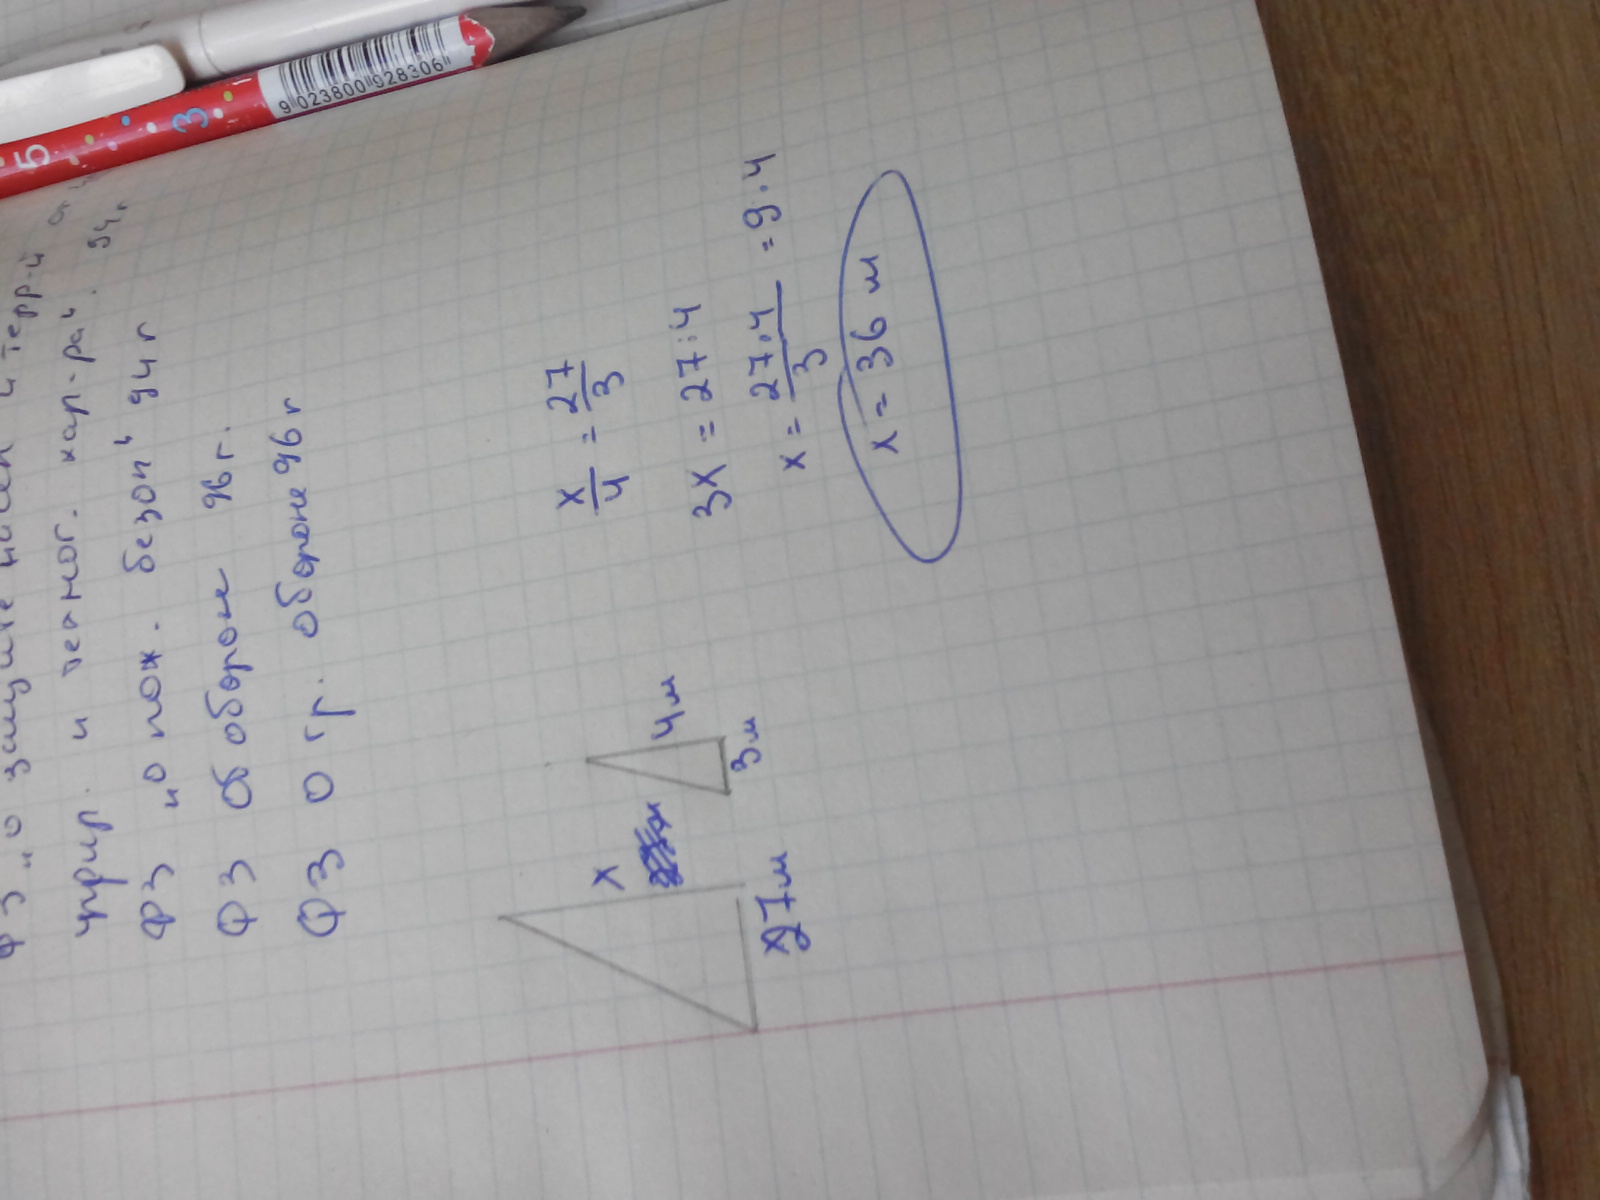 ФЗ „о защите насел и терр-й от
прир. и техног. хар-ра". 94г
ФЗ „о пож. безоп" 94 г
ФЗ Об обороне 96 г.
ФЗ О гр. обороне 96 г
x
27м
4м
3м
x/4 = 27/3
3x = 27:4
x = 27·4/3 = 9·4
x = 36 м
9 023800 928306
5
3
1